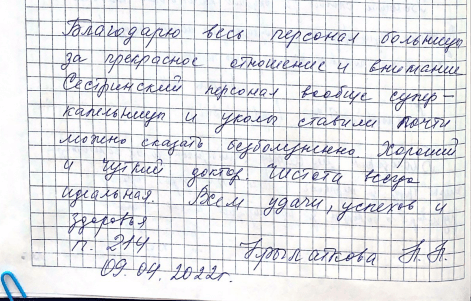 Благодарю весь персонал больницы
за прекрасное отношение и внимание
Сестринский персонал вообще супер-
капельницы и уколы ставили почти
можно сказать безболезненно. Хороший
и чуткий доктор. Чистота всегда
идеальная. Всем удачи, успехов и
здоровья
п. 214 Крылаткова Н.П.
09.04.2022г.